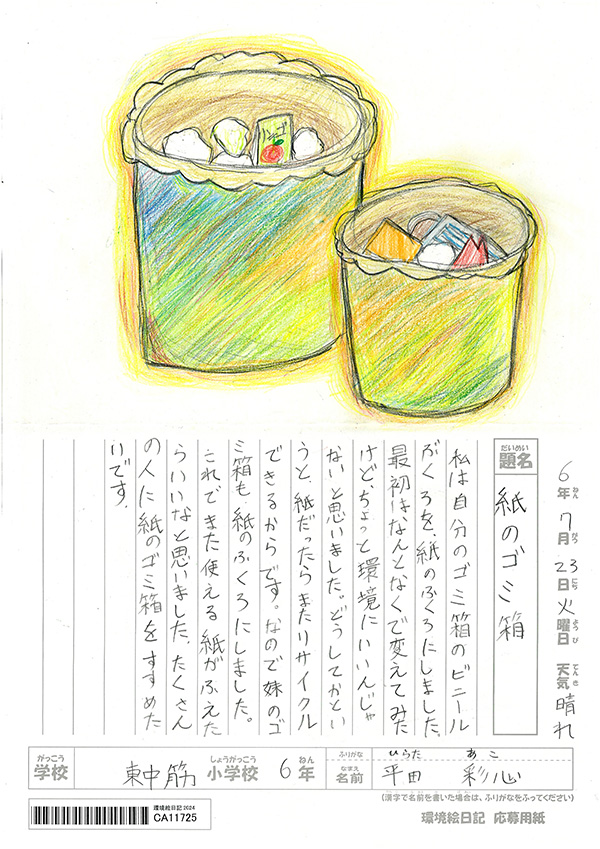 リンゴ
6年7月23日火曜日 天気 晴れ
ねん がつ にち ようび てんき
だいめい
題名
紙のゴミ箱
私は自分のゴミ箱のビニール
ぶくろを、紙のふくろにしました。
最初はなんとなくで変えてみた
けど、ちょっと環境にいいんじゃ
ないと思いました。どうしてかとい
うと、紙だったらまたリサイクル
できるからです。なので妹のゴ
ミ箱も、紙のふくろにしました。
これでまた使える紙がふえた
らいいなと思いました。たくさん
の人に紙のゴミ箱をすすめた
いです。
がっこう しょうがっこう ねん
学校 東中筋 小学校 6年
ふりがな ひらた あこ
なまえ
名前 平田 彩心
(漢字で名前を書いた場合は、ふりがなをふってください)
環境絵日記 2024
CA11725
環境絵日記 応募用紙